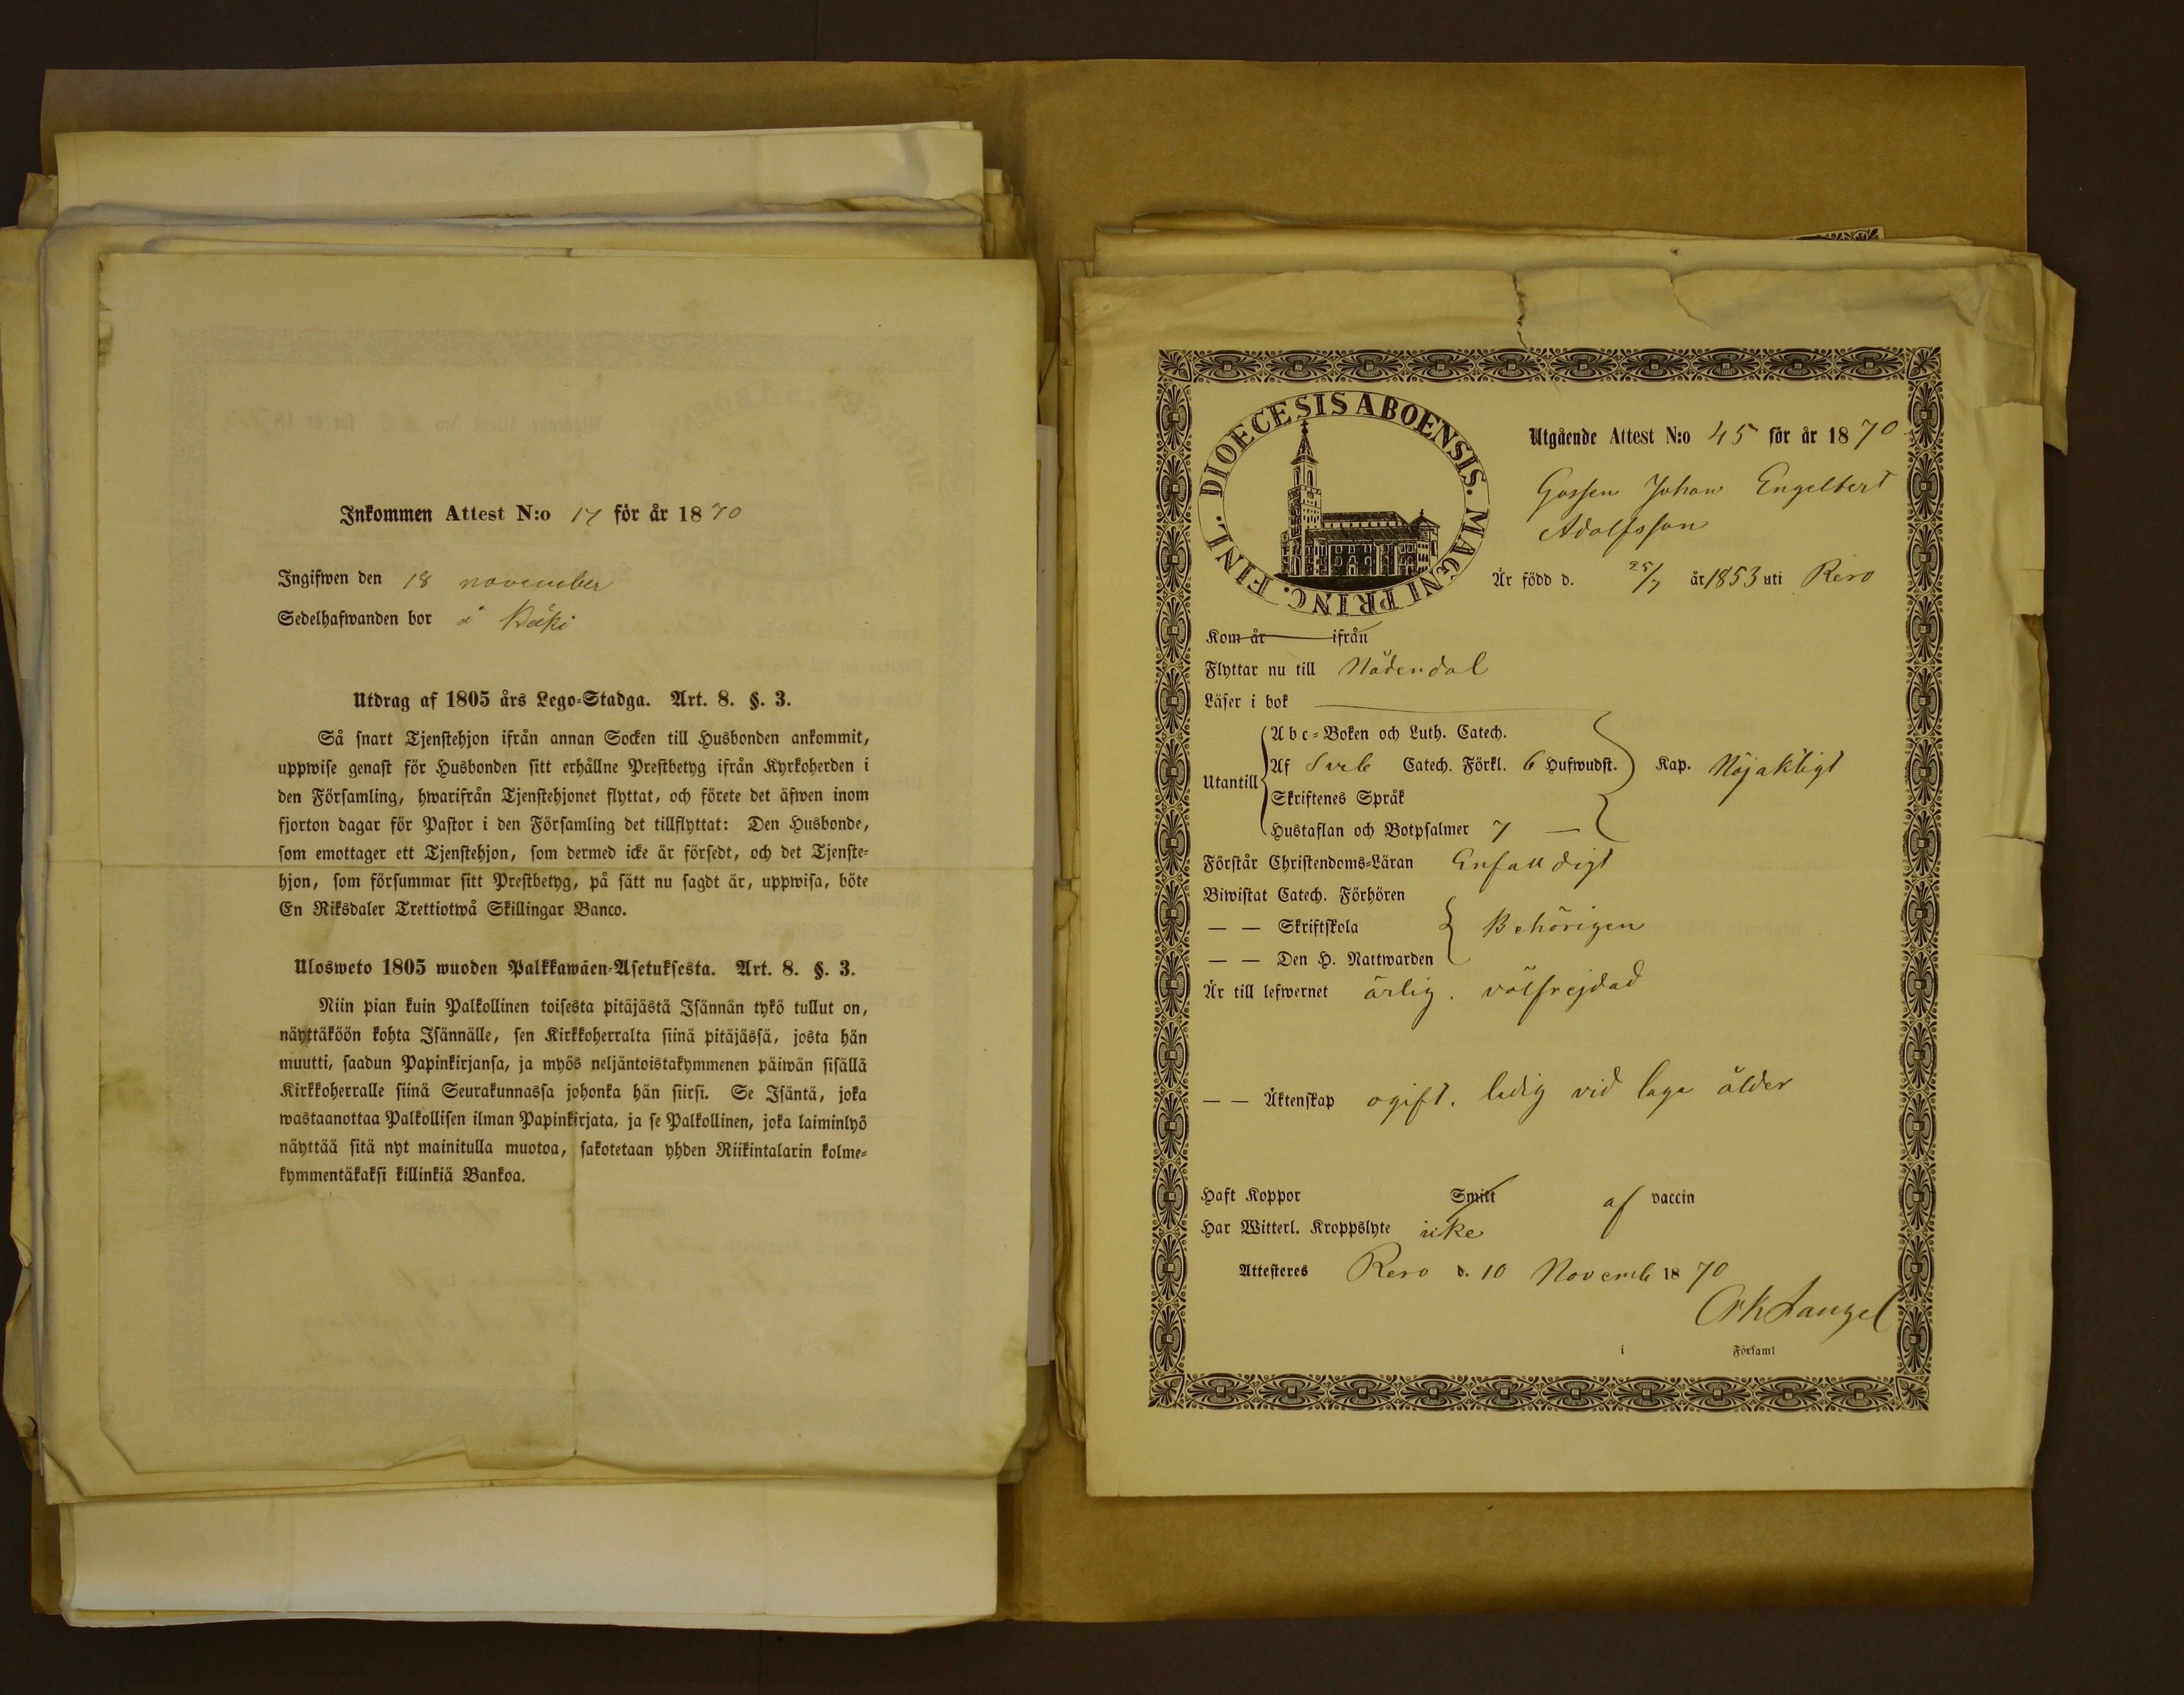 Inkommen Attest N:o 17 för år 1870
Ingifwen den 18 november
Sedelhafwanden bor å
Utdrag af 1805 års Lego-Stadga. Art. 8. §. 3.
Så snart Tjenstehjon ifrån annan Socken till Husbonden ankommit,
uppwise genast för Husbonden sitt erhållne Prestbetyg ifrån Kyrkoherden i
den Församling, hwarifrån Tjenstehjonet flyttat, och förete det äfwen inom
fjorton dagar för Pastor i den Församling det tillflyttat: Den Husbonde,
som emottager ett Tjenstehjon, som dermed icke är försedt, och det Tjenste-
hjon, som försummar sitt Prestbetyg, på sätt nu sagdt är, uppwisa, böte
En Riksdaler Trettiotwå Skillingar Banco.
Ulosweto 1805 wuoden Palkkawäen-Asetuksesta. Art. 8. §. 3.
Niin pian kuin Palkollinen toisesta pitäjästä Isännän tykö tullut on,
näyttäköön kohta Isännälle, sen Kirkkoherralta siinä pitäjässä, josta hän
muutti, saadun Papinkirjansa, ja myös neljäntoistakymmenen päiwän sisällä
Kirkkoherralle siinä Seurakunnassa johonka hän siirsi. Se Isäntä, joka
wastaanottaa Palkollisen ilman Papinkirjata, ja se Palkollinen, joka laiminlyö
näyttää sitä nyt mainitulla muotoa, sakotetaan yhden Riikintalarin kolme-
kymmentäkaksi killinkiä Bankoa.
DIOECESIS ABOENSIS. MAGNI PRINC. FINL.
Utgående Attest N:o 45 för år 1870
Gossen Johan Engelbert
Adolfsson
Är född d. 25/7 år 1853 uti Reso
Kom år ifrån
Flyttar nu till Nådendal
Läser i bok
Abc-Boken och Luth. Catech.
Utantill Af Sveb Catech. Förkl. 6 Hufwudst. Kap. Nöjaktligt
Skriftenes Språk
Hustaflan och Botpsalmer 7 —
Förstår Christendoms-Läran Enfalldigt
Biwistat Catech. Förhören
— — Skriftskola Behörigen
— — Den H. Nattwarden
Är till lefwernet ärlig. välfrejdad
— — Äktenskap ogift. ledig vid laga ålder
Haft Koppor Smitt af vaccin
Har Witterl. Kroppslyte icke
Attesteres Reso d. 10 Novemb 1870
i Församl